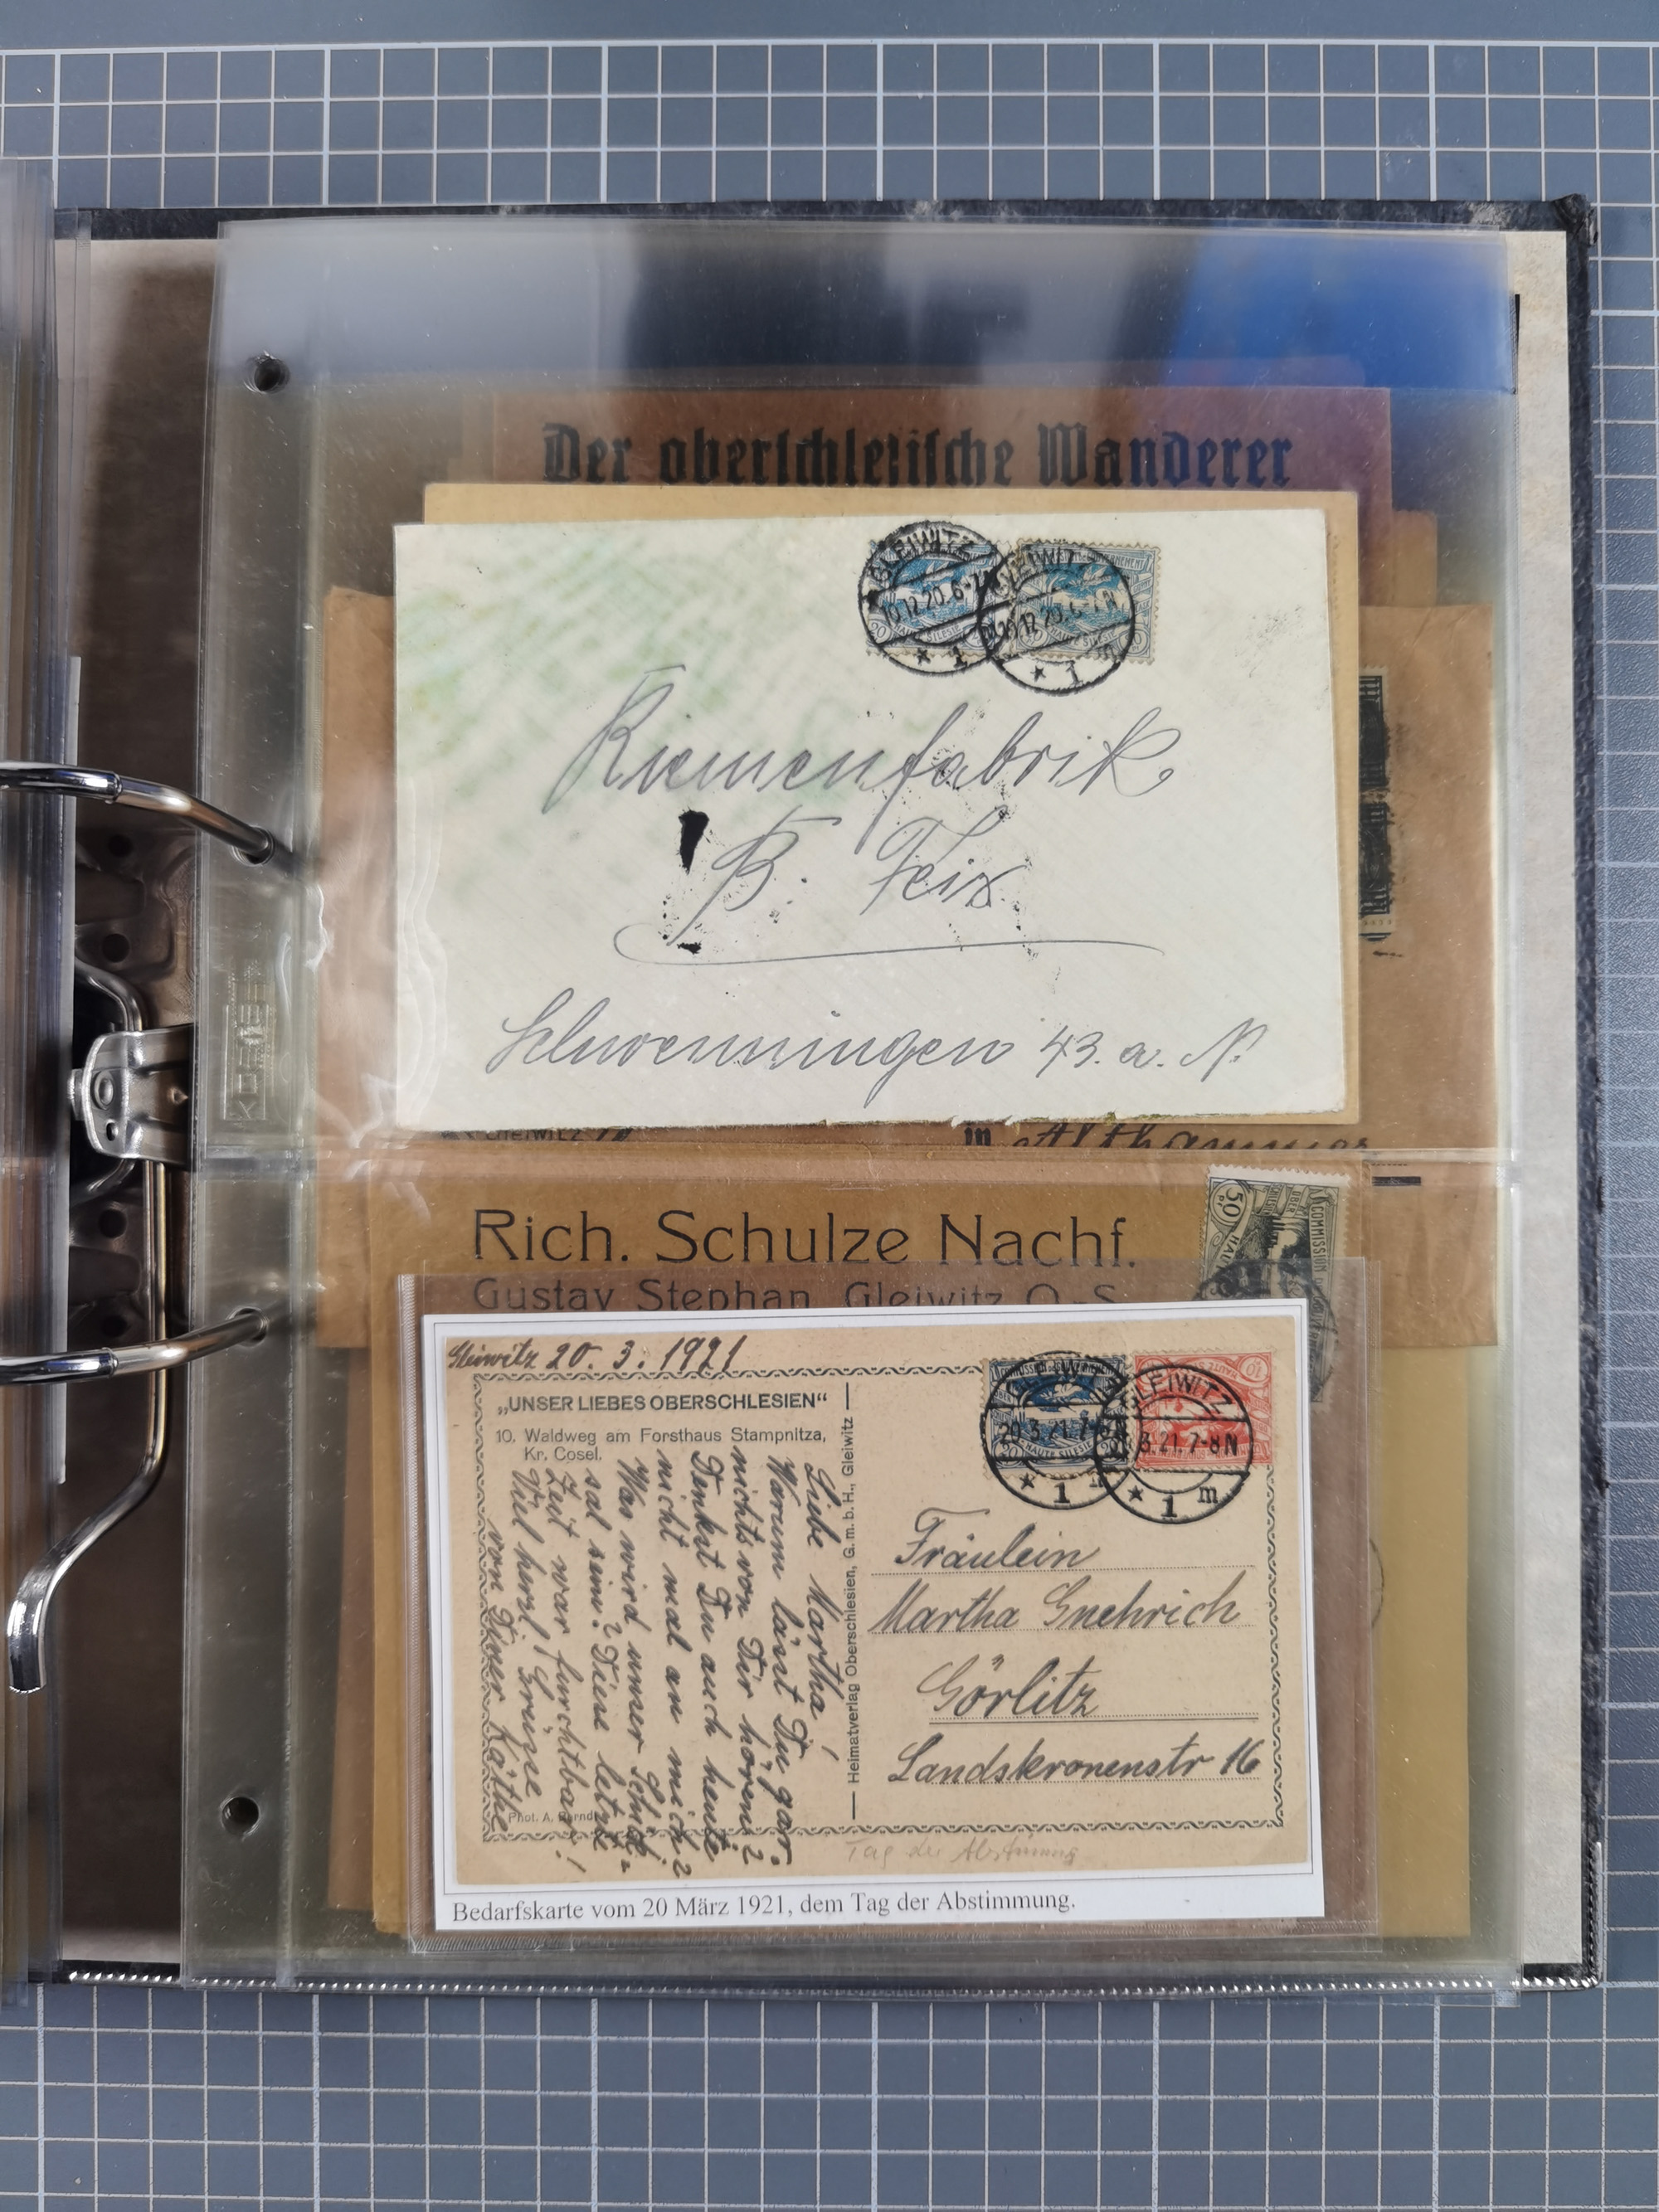 Der oberschlesische Wanderer
GLEIWITZ
10.12.20.6-7N
* 1 m
GLEIWITZ
12.20.6-7N
* 1 m
20
HAUTE SILESIE
HAUTE SILESIE
Riemenfabrik
B. Feix
Schwenningen 43. a. N.
KOBRA
GLEIWITZ
in Althammer
Rich. Schulze Nachf.
Gustav Stephan, Gleiwitz O.-S.
50
COMMISSION
Gleiwitz 20. 3. 1921
„UNSER LIEBES OBERSCHLESIEN“
10. Waldweg am Forsthaus Stampnitza,
Kr. Cosel.
Liebe Martha!
Warum läßt Du gar-
nichts von Dir hören?
Denkst Du auch heute
nicht mal an mich?
Was wird unser Schick-
sal sein? Diese letzte
Zeit war furchtbar!
Viel herzl. Grüsse
von Deiner Käthe
Phot. A. Bernd
Heimatverlag Oberschlesien, G. m. b. H., Gleiwitz
20
HAUTE SILESIE
20
10
GLEIWITZ
20.3.21.7-8N
* 1 m
GLEIWITZ
3.21.7-8N
* 1 m
Fräulein
Martha Gnehrich
Görlitz
Landskronenstr 16
Tag der Abstimmung
Bedarfskarte vom 20 März 1921, dem Tag der Abstimmung.